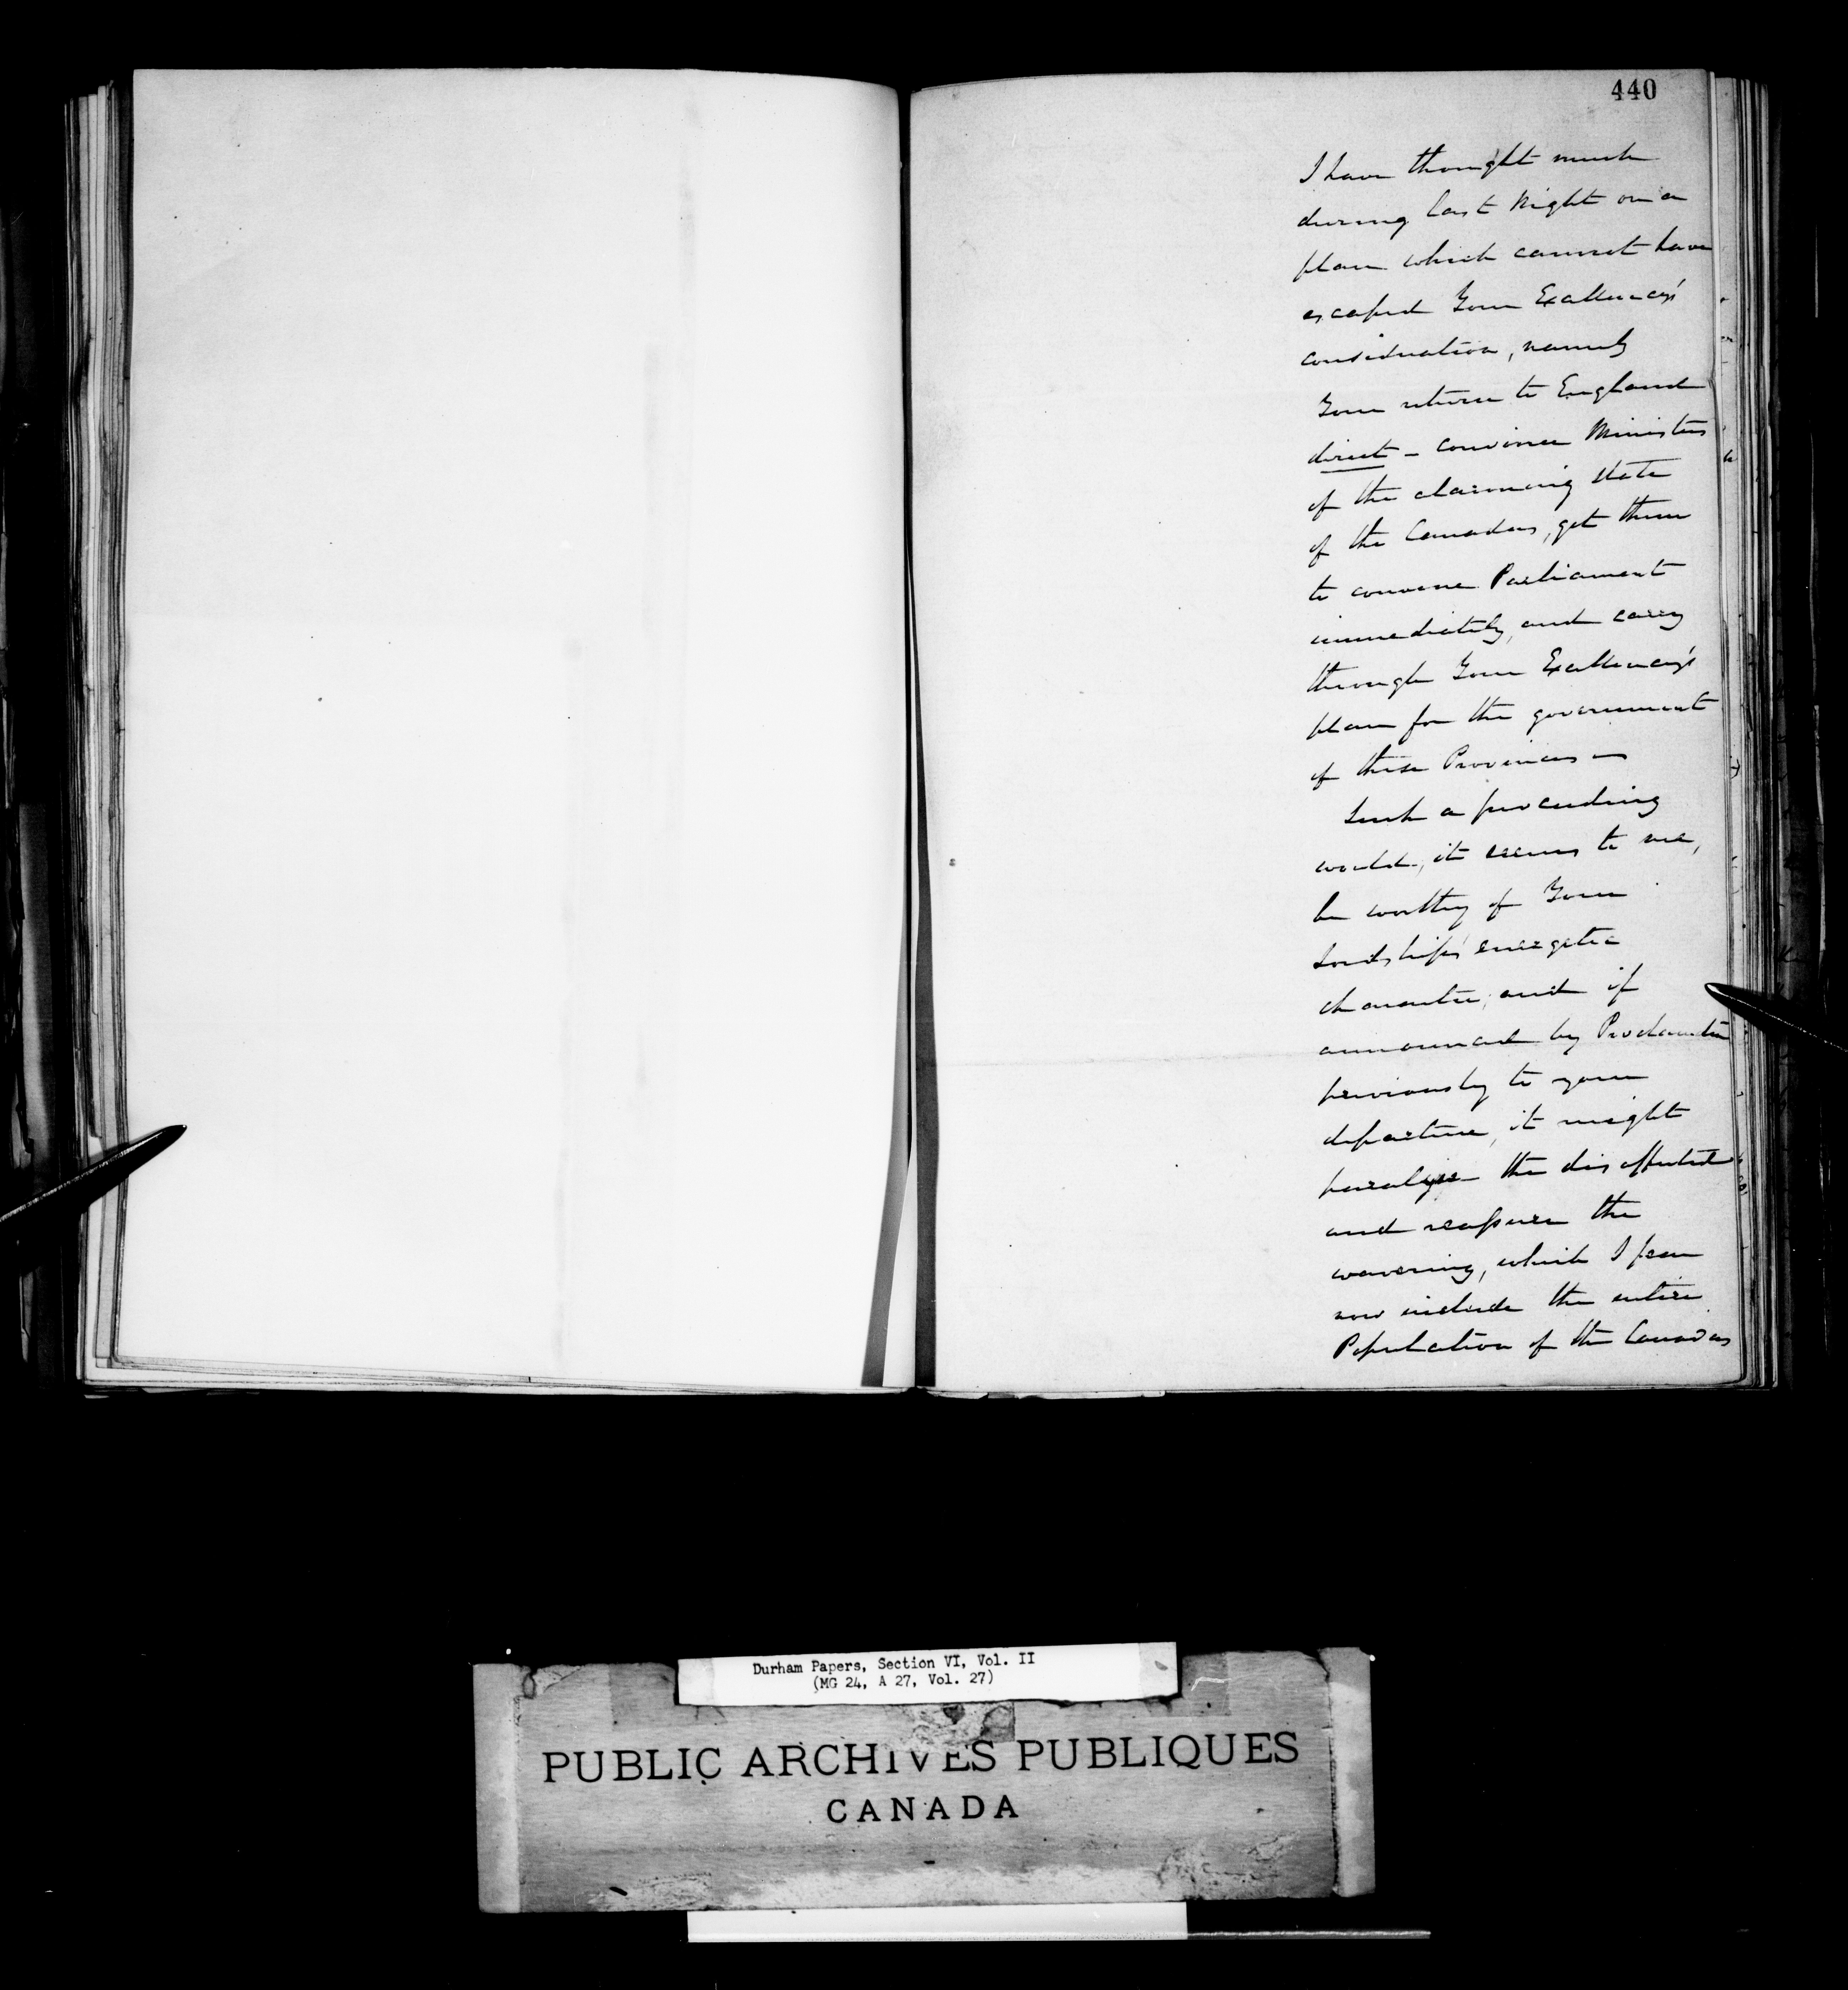 440
I have thought much
during last Night on a
plan which cannot have
escaped Your Excellency's
consideration, namely
Your return to England
direct - convince Ministers
of the alarming state
of the Canadas, get them
to convene Parliament
immediately, and carry
through Your Excellency's
plan for the government
of these Provinces
Such a proceeding
would, it seems to me,
be worthy of Your
Lordship's energetic
character, and if
announced by Proclamation
previously to your
departure, it might
paralyse the disaffected
and reassure the
wavering, which I fear
now include the entire
Population of the Canadas
Durham Papers, Section VI, Vol. II
(MG 24, A 27, Vol. 27)
PUBLIC ARCHIVES PUBLIQUES
CANADA